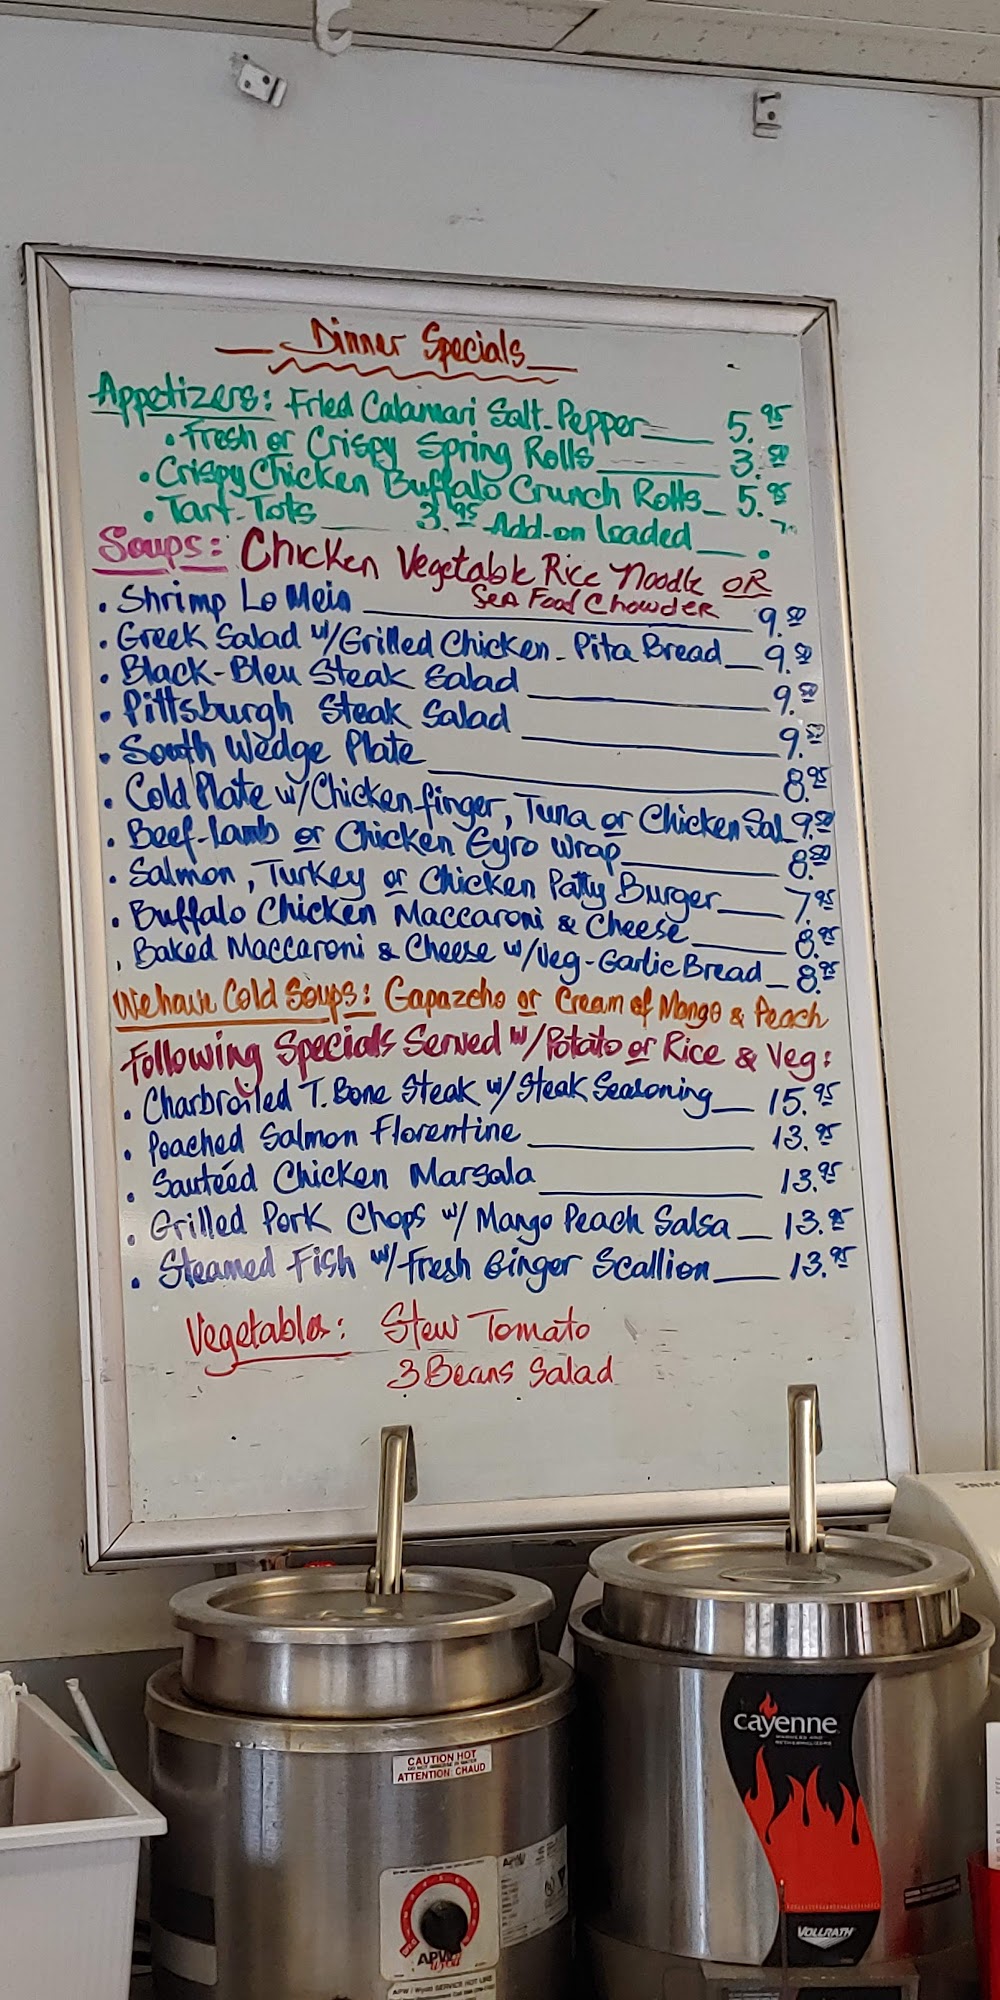 Dinner Specials
Appetizers: Fried Calamari Salt-Pepper 5.95
• Fresh or Crispy Spring Rolls 3.50
• Crispy Chicken Buffalo Crunch Rolls 5.95
• Tart-Tots 3.95 Add-on Loaded
Soups: Chicken Vegetable Rice Noodle OR
Sea Food Chowder
• Shrimp Lo Mein 9.50
• Greek Salad w/Grilled Chicken - Pita Bread 9.50
• Black-Bleu Steak Salad 9.50
• Pittsburgh Steak Salad 9.50
• South Wedge Plate 8.95
• Cold Plate w/Chicken finger, Tuna or Chicken Sal 9.50
• Beef-Lamb or Chicken Gyro Wrap 8.50
• Salmon, Turkey or Chicken Patty Burger 7.95
• Buffalo Chicken Maccaroni & Cheese 8.95
• Baked Maccaroni & Cheese w/Veg-Garlic Bread 8.95
We have Cold Soups: Gapazcho or Cream of Mango & Peach
Following Specials Served w/Potato or Rice & Veg:
• Charbroiled T. Bone Steak w/ Steak Seasoning 15.95
• Poached Salmon Florentine 13.95
• Sauteéd Chicken Marsala 13.95
• Grilled Pork Chops w/ Mango Peach Salsa 13.95
• Steamed Fish w/Fresh Ginger Scallion 13.95
Vegetables: Stew Tomato
3 Beans Salad
CAUTION HOT
ATTENTION: CHAUD
APW
cayenne
VOLLRATH